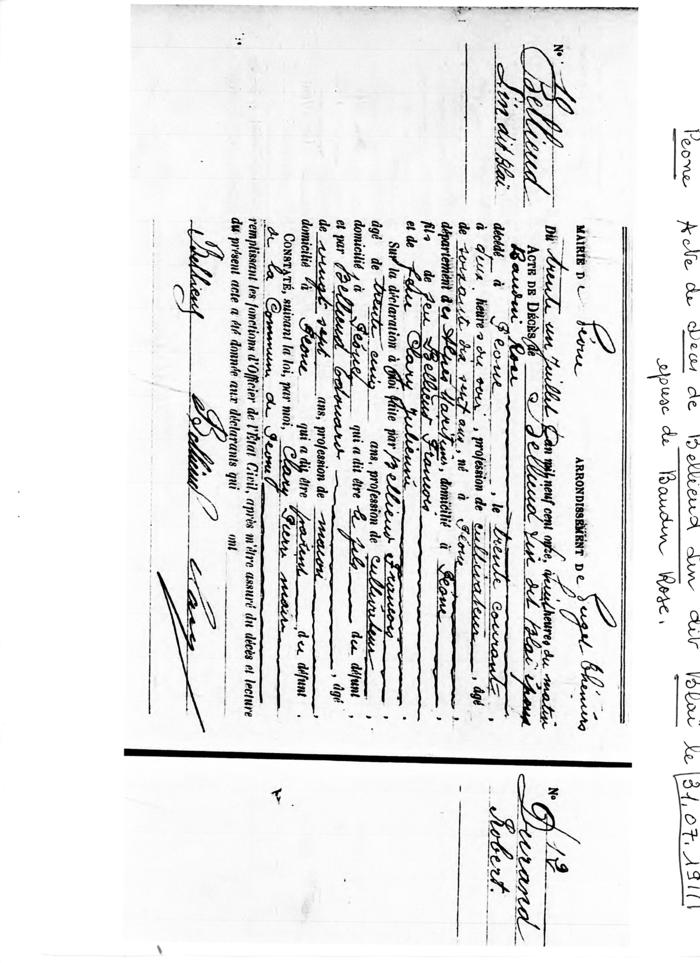 Peone Acte de Deces de Bellieud Lin dit Blai le 31.07.1911
epuse de Baudin Rose.
No 10
Bellieud
Lin dit Blai
MAIRIE DE Péone ARRONDISSEMENT DE Puget Théniers
Du trente un juillet l'an mil neuf cent onze, à neuf heures du matin
ACTE DE DÉCÈS de Bellieud Lin dit Blai époux
Baudin Rose
décédé à Péone, le trente courant,
à heures du soir, profession de cultivateur, âgé
de soixante dix sept ans, né à Péone,
département des Alpes Maritimes, domicilié à Péone,
fils de feu Bellieud François
et de feu Clary Julienne
Sur la déclaration à moi faite par Bellieud François
âgé de trente cinq ans, profession de cultivateur
domicilié à Péone, qui a dit être le fils du défunt,
et par Bellieud Edouard, âgé
de vingt sept ans, profession de maçon,
domicilié à Péone qui a dit être parent du défunt.
CONSTATÉ, suivant la loi, par moi, Clary Pierre maire
de la Commune de Péone
remplissant les fonctions d'Officier de l'État Civil, après m'être assuré du décès et lecture
du présent acte a été donnée aux déclarants qui ont
Bellieud Bellieud Clary
No 12
Durand
Robert.